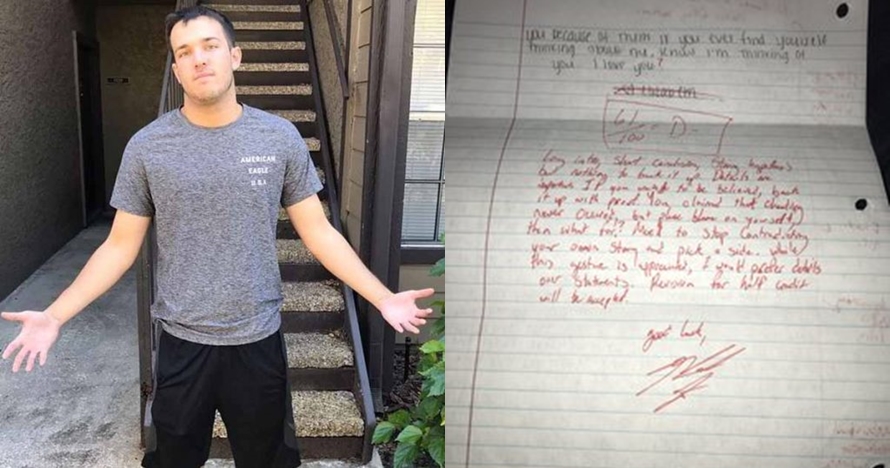 AMERICAN
EAGLE
U.S.A
you because of them if you ever find yourself
thinking about me, know I'm thinking of
you I love you?
61
100 = D-
Long intro, short conclusion, strong hypothesis
but nothing to back it up. Details are
important. If you want to be believed, back
it up with proof. You claimed that cheating
never occured, but place blame on yourself,
then what for? Need to stop contradicting
your own story and pick a side. While
this gesture is appreciated, I would prefer details
over statements. Revision for half credit
will be accepted.
good luck,